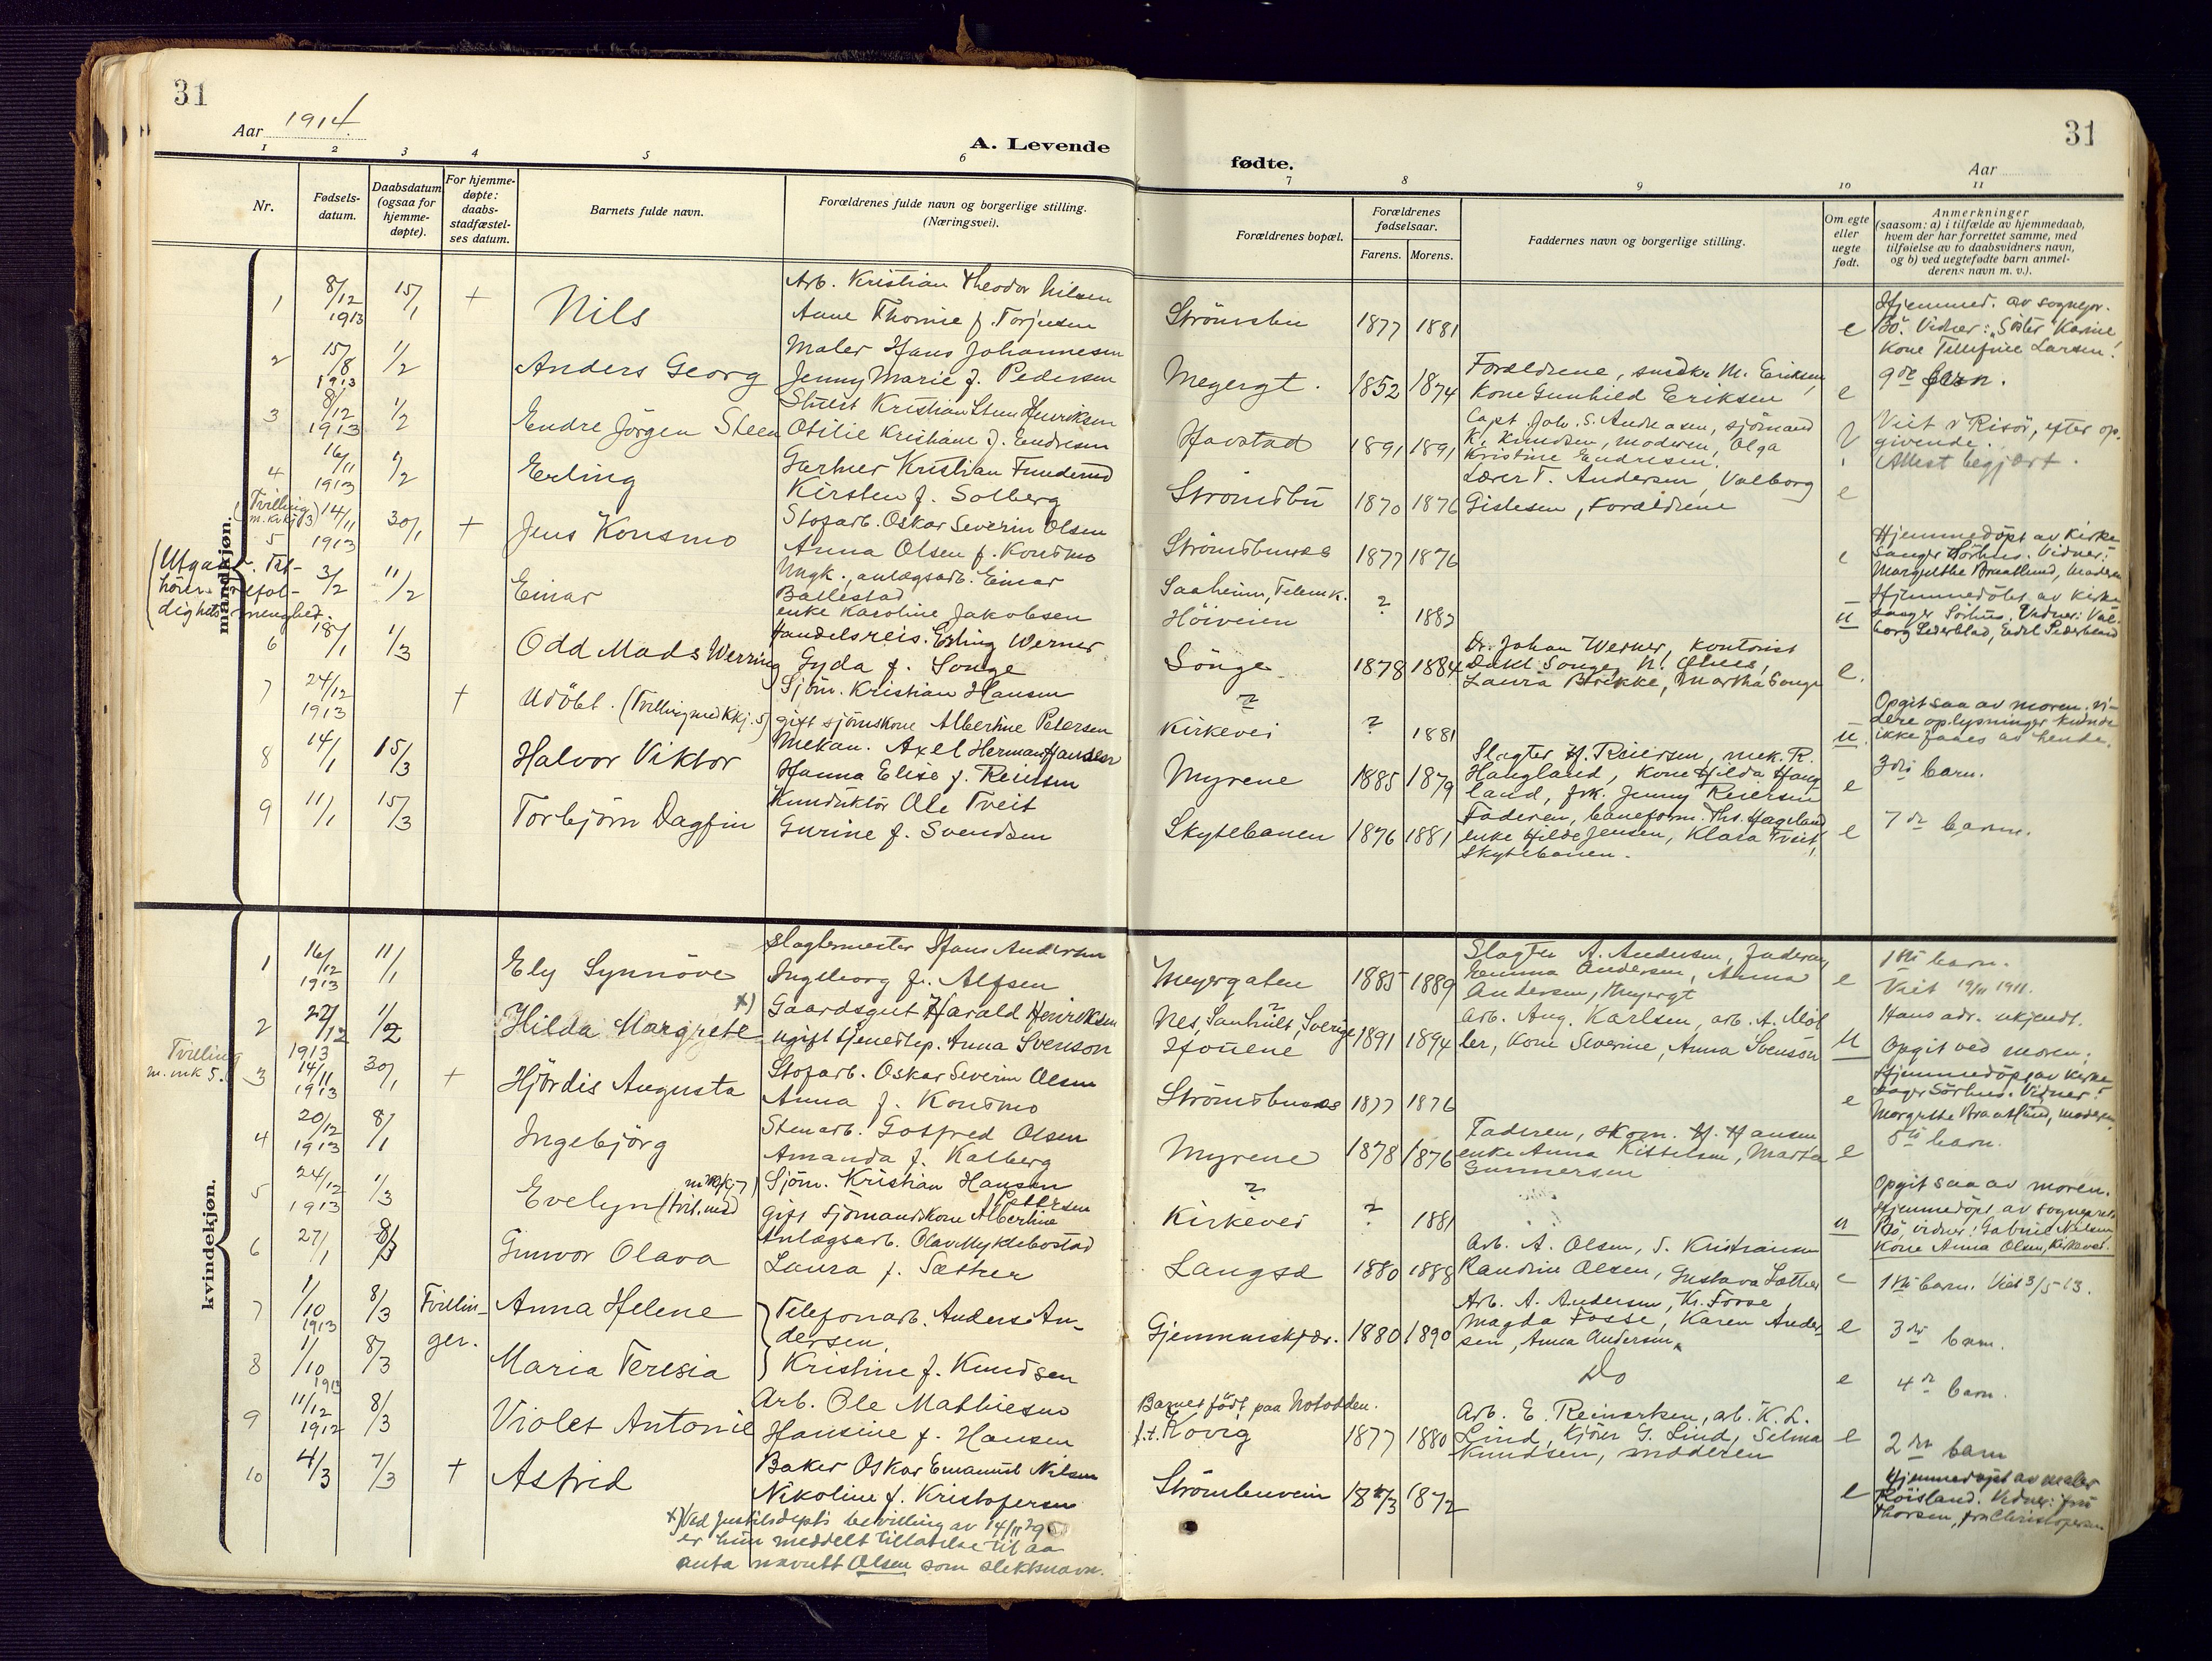 31
Aar 1914.
A. Levende
1 2 3 4 5 6
Nr.
Fødsels-
datum.
Daabsdatum
(ogsaa for
hjemme-
døpte).
For hjemme-
døpte:
daabs-
stadfæstel-
ses datum.
Barnets fulde navn.
Forældrenes fulde navn og borgerlige stilling.
(Næringsvei).
mandkjøn.
1 8/12 1913 15/1 + Nils
Arb. Kristian Theodor Nilsen
Anne Thomine f. Torjusen
2 15/8 1913 1/2 Anders Georg
Maler Hans Johannesen
Jenny Marie f. Pedersen
3 8/12 1913 1/2 Endre Jörgen Steen
Stuert Kristian Steen Henriksen
Otilie Kristiane f. Endresen
4 16/11 1913 1/2 Erling
Gartner Kristian Funderud
Kirsten f. Solberg
(Tvilling
m. kvkj. 3)
5 14/11 1913 30/1 + Jens Konsmo
Stofarb. Oskar Severin Olsen
Anna Olsen f. Konsmo
(Utgaar. Til-
hører
dighets menighed.
3/2 11/2 Einar
Ungk., anlægsarb. Einar
Ballestad
enke Karoline Jakobsen
6 18/1 1/3 Odd Mads Werring
Handelsreis. Erling Werner
Gyda f. Songe
7 24/12 1913 + Udöbt. (Tvilling med kkj. 5)
Sjöm. Kristian Hansen
gift sjömskone Albertine Petersen
8 14/1 15/3 Halvor Viktor
Mekan. Axel Herman Hansen
Hanna Elise f. Reiersen
9 11/1 15/3 Torbjörn Dagfin
Kunduktör Ole Tveit
Gurine f. Svendsen
kvindekjøn.
1 16/12 1913 11/1 Ely Synnöve
Slagtermester Hans Andersen
Ingeborg f. Alfsen
2 27/12 1913 1/2 Hilda Margrete x)
Gaardsgut Harald Henriksen
ugift tjenestep. Anna Svenson
Tvilling
m. mk 5.
3 14/11 1913 30/1 + Hjördis Augusta
Stofarb. Oskar Severin Olsen
Anna f. Konsmo
4 20/12 1913 8/1 Ingebjörg
Stenarb. Gotfred Olsen
Amanda f. Kalberg
5 24/12 1913 1/3 Evelyn (tvil. med m. kj. 7)
Sjöm. Kristian Hansen
gift sjömandskone Albertine Pettersen
6 27/1 8/3 Gunvor Olava
Anlægsarb. Olav Myklebostad
Laura f. Sæther
7 1/10 1913 8/3 Tvillin- Anna Helene
Telefonarb. Anders An-
dersen,
ger.
8 1/10 1913 8/3 Maria Teresia
Kristine f. Knudsen
9 11/12 1912 8/3 Violet Antonie
Arb. Ole Mathiesen
Hansine f. Hansen
10 4/3 7/3 + Astrid
Baker Oskar Emanuel Nilsen
Nikoline f. Kristofersen
x) Ved Justisdepts bevilling av 14/11 29
er hun meddelt tillatelse til aa
anta navnet Olsen som slektsnavn.
31
fødte.
Aar
7 8 9 10 11
Forældrenes bopæl.
Forældrenes
fødselsaar.
Farens. Morens.
Faddernes navn og borgerlige stilling.
Om egte
eller
uegte
født.
Anmerkninger
(saasom: a) i tilfælde av hjemmedaab,
hvem der har forrettet samme, med
tilføielse av to daabsvidners navn,
og b) ved uegtefødte barn anmel-
derens navn m. v.).
Strömsbu 1877 1881 e
Hjemmed. av sognepr.
Bö. Vidner: Söster Karine,
Kone Tellefine Larsen.
Meyergt. 1852 1874
Forældrene, snedker M. Eriksen,
Kone Gunhild Eriksen e
9de barn.
Havstad 1891 1891
Capt. Joh. S. Andreasen, sjömand
K. Knudsen, moderen, Olga
Kristine Endresen.
Viet i Risör, efter op-
givende.
Attest begjært.
Strömsbu 1870 1876
Lærer T. Andersen, Valborg
Gislesen, Forældrene e
Strömsbunes 1877 1876 e
Hjemmedöpt av Kirke-
sanger Sörhus. Vidner:
Margrethe Braatlund, Moderen
Saaheim, Telemk. ?
Höiveien 1882 u
Hjemmedöbt av kirke-
sanger Sörhus. Vidner: Val-
borg Sederblad, Edel Sederblad
Songe 1878 1884
Dr. Johan Werner, Kontorist
Laura Brekke, Martha Songe e.
? ?
Kirkevei 1881 u
Opgit saa av moren. Vi-
dere oplysninger kunde
ikke faaes av hende.
Myrene 1885 1879
Slagter H. Reiersen, mek. R.
Haugland, Kone Hilda Haug-
land, frk. Jenny Reiersen e
3die barn.
Skytebanen 1876 1881
Faderen, baneform. Ths. Hageland
enke Hilde Jensen, Klara Tveit,
Skytebanen. e
7de barn.
Meyergaten 1885 1889
Slagter A. Andersen, faderen,
Emma Andersen, Anna
Andersen, Meyergt e
1ste barn.
Viet 19/11 1911.
Nes, Sanhult, Sverige ?
Houene 1891 1894
Arb. Aug. Karlsen, arb. A. Möl-
ler, Kone Severine, Anna Svenson u
Hans adr. ukjendt.
Opgit ved moren.
Strömsbunes 1877 1876 e
Hjemmedöpt av Kirke-
sanger Sörhus. Vidner:
Margrethe Braatlund, moderen.
Myrene 1878 1876
Faderen, skom. H. Hansen
enke Anna Kittelsen, Marta
Gunnersen e
barn.
? ?
Kirkevei 1881 u
Opgit saa av moren.
Hjemmedöpt av sogneprest
Bö, vidner: Gabriel Nilsen,
Kone Anna Olsen, Kirkevei.
Langsæ 1880 1888
Arb. A. Olsen, S. Kristiansen
Randine Olsen, Gustava Sæther e
1ste barn. Viet 3/5-13.
Gjennemskjær. 1880 1890
Arb. A. Andersen, Kr. Fosse,
Magda Fosse, Karen Ander-
sen, Anna Andersen. e
3die barn.
Do e
4de barn.
Barnet födt paa Notodden.
f.t. Kovig 1877 1880
Arb. E. Reinertsen, arb. K. L.
Lind, kjörer G. Lind, Selma
Knudsen, moderen e
2det barn
Strömbuveien 1873 1872 e
Hjemmedöpt av maler
Röisland. Vidner: fru
Thorsen, fru Christofersen